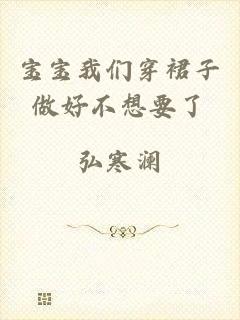 宝宝我们穿裙子
做好不想要了
弘寒澜